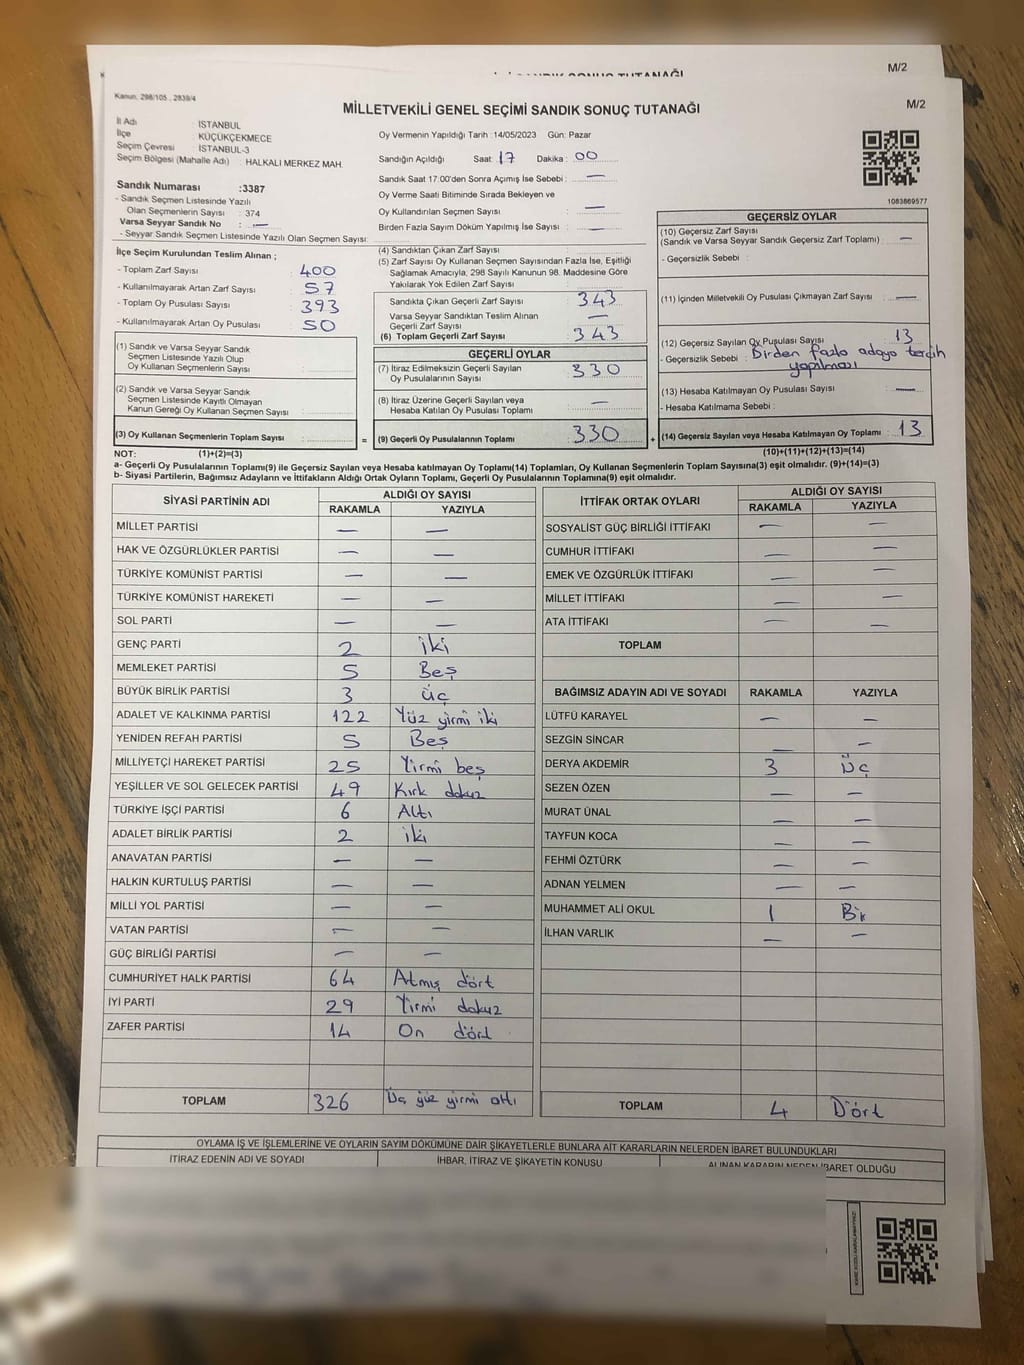 M/2
Kanun: 298/105 , 2839/4
MİLLETVEKİLİ GENEL SEÇİMİ SANDIK SONUÇ TUTANAĞI
M/2
İl Adı : İSTANBUL
İlçe : KÜÇÜKÇEKMECE
Seçim Çevresi : İSTANBUL-3
Seçim Bölgesi (Mahalle Adı) : HALKALI MERKEZ MAH.
Sandık Numarası :3387
- Sandık Seçmen Listesinde Yazılı
Olan Seçmenlerin Sayısı : 374
Varsa Seyyar Sandık No : —
- Seyyar Sandık Seçmen Listesinde Yazılı Olan Seçmen Sayısı:
Oy Vermenin Yapıldığı Tarih :14/05/2023 Gün: Pazar
Sandığın Açıldığı Saat: 17 Dakika : 00
Sandık Saat 17:00'den Sonra Açımış İse Sebebi : —
Oy Verme Saati Bitiminde Sırada Bekleyen ve
Oy Kullandırılan Seçmen Sayısı : —
Birden Fazla Sayım Döküm Yapılmış İse Sayısı : —
1083869577
İlçe Seçim Kurulundan Teslim Alınan ;
- Toplam Zarf Sayısı : 400
- Kullanılmayarak Artan Zarf Sayısı : 57
- Toplam Oy Pusulası Sayısı : 393
- Kullanılmayarak Artan Oy Pusulası : 50
(1) Sandık ve Varsa Seyyar Sandık
Seçmen Listesinde Yazılı Olup
Oy Kullanan Seçmenlerin Sayısı :
(2) Sandık ve Varsa Seyyar Sandık
Seçmen Listesinde Kayıtlı Olmayan
Kanun Gereği Oy Kullanan Seçmen Sayısı :
(3) Oy Kullanan Seçmenlerin Toplam Sayısı :
(4) Sandıktan Çıkan Zarf Sayısı :
(5) Zarf Sayısı Oy Kullanan Seçmen Sayısından Fazla İse, Eşitliği
Sağlamak Amacıyla, 298 Sayılı Kanunun 98. Maddesine Göre
Yakılarak Yok Edilen Zarf Sayısı :
Sandıkta Çıkan Geçerli Zarf Sayısı : 343
Varsa Seyyar Sandıktan Teslim Alınan
Geçerli Zarf Sayısı : —
(6) Toplam Geçerli Zarf Sayısı : 343
GEÇERLİ OYLAR
(7) İtiraz Edilmeksizin Geçerli Sayılan
Oy Pusulalarının Sayısı : 330
(8) İtiraz Üzerine Geçerli Sayılan veya
Hesaba Katılan Oy Pusulası Toplamı : —
= (9) Geçerli Oy Pusulalarının Toplamı : 330
GEÇERSİZ OYLAR
(10) Geçersiz Zarf Sayısı
(Sandık ve Varsa Seyyar Sandık Geçersiz Zarf Toplamı) : —
- Geçersizlik Sebebi :
(11) İçinden Milletvekili Oy Pusulası Çıkmayan Zarf Sayısı : —
(12) Geçersiz Sayılan Oy Pusulası Sayısı : 13
- Geçersizlik Sebebi : Birden fazla adaya tercih
yapılması
(13) Hesaba Katılmayan Oy Pusulası Sayısı : —
- Hesaba Katılmama Sebebi :
+ (14) Geçersiz Sayılan veya Hesaba Katılmayan Oy Toplamı : 13
NOT: (1)+(2)=(3)
(10)+(11)+(12)+(13)=(14)
a- Geçerli Oy Pusulalarının Toplamı(9) ile Geçersiz Sayılan veya Hesaba katılmayan Oy Toplamı(14) Toplamları, Oy Kullanan Seçmenlerin Toplam Sayısına(3) eşit olmalıdır. (9)+(14)=(3)
b- Siyasi Partilerin, Bağımsız Adayların ve İttifakların Aldığı Ortak Oyların Toplamı, Geçerli Oy Pusulalarının Toplamına(9) eşit olmalıdır.
SİYASİ PARTİNİN ADI ALDIĞI OY SAYISI
RAKAMLA YAZIYLA
MİLLET PARTİSİ — —
HAK VE ÖZGÜRLÜKLER PARTİSİ — —
TÜRKİYE KOMÜNİST PARTİSİ — —
TÜRKİYE KOMÜNİST HAREKETİ — —
SOL PARTİ — —
GENÇ PARTİ 2 iki
MEMLEKET PARTİSİ 5 Beş
BÜYÜK BİRLİK PARTİSİ 3 üç
ADALET VE KALKINMA PARTİSİ 122 Yüz yirmi iki
YENİDEN REFAH PARTİSİ 5 Beş
MİLLİYETÇİ HAREKET PARTİSİ 25 Yirmi beş
YEŞİLLER VE SOL GELECEK PARTİSİ 49 Kırk dokuz
TÜRKİYE İŞÇİ PARTİSİ 6 Altı
ADALET BİRLİK PARTİSİ 2 iki
ANAVATAN PARTİSİ — —
HALKIN KURTULUŞ PARTİSİ — —
MİLLİ YOL PARTİSİ — —
VATAN PARTİSİ — —
GÜÇ BİRLİĞİ PARTİSİ — —
CUMHURİYET HALK PARTİSİ 64 Atmış dört
İYİ PARTİ 29 Yirmi dokuz
ZAFER PARTİSİ 14 On dört
TOPLAM 326 Üç yüz yirmi altı
İTTİFAK ORTAK OYLARI ALDIĞI OY SAYISI
RAKAMLA YAZIYLA
SOSYALİST GÜÇ BİRLİĞİ İTTİFAKI — —
CUMHUR İTTİFAKI — —
EMEK VE ÖZGÜRLÜK İTTİFAKI — —
MİLLET İTTİFAKI — —
ATA İTTİFAKI — —
TOPLAM
BAĞIMSIZ ADAYIN ADI VE SOYADI RAKAMLA YAZIYLA
LÜTFÜ KARAYEL — —
SEZGİN SİNCAR — —
DERYA AKDEMİR 3 Üç
SEZEN ÖZEN — —
MURAT ÜNAL — —
TAYFUN KOCA — —
FEHMİ ÖZTÜRK — —
ADNAN YELMEN — —
MUHAMMET ALİ OKUL 1 Bir
İLHAN VARLIK — —
TOPLAM 4 Dört
OYLAMA İŞ VE İŞLEMLERİNE VE OYLARIN SAYIM DÖKÜMÜNE DAİR ŞİKAYETLERLE BUNLARA AİT KARARLARIN NELERDEN İBARET BULUNDUKLARI
İTİRAZ EDENİN ADI VE SOYADI İHBAR, İTİRAZ VE ŞİKAYETİN KONUSU ALINAN KARARIN NEDEN İBARET OLDUĞU